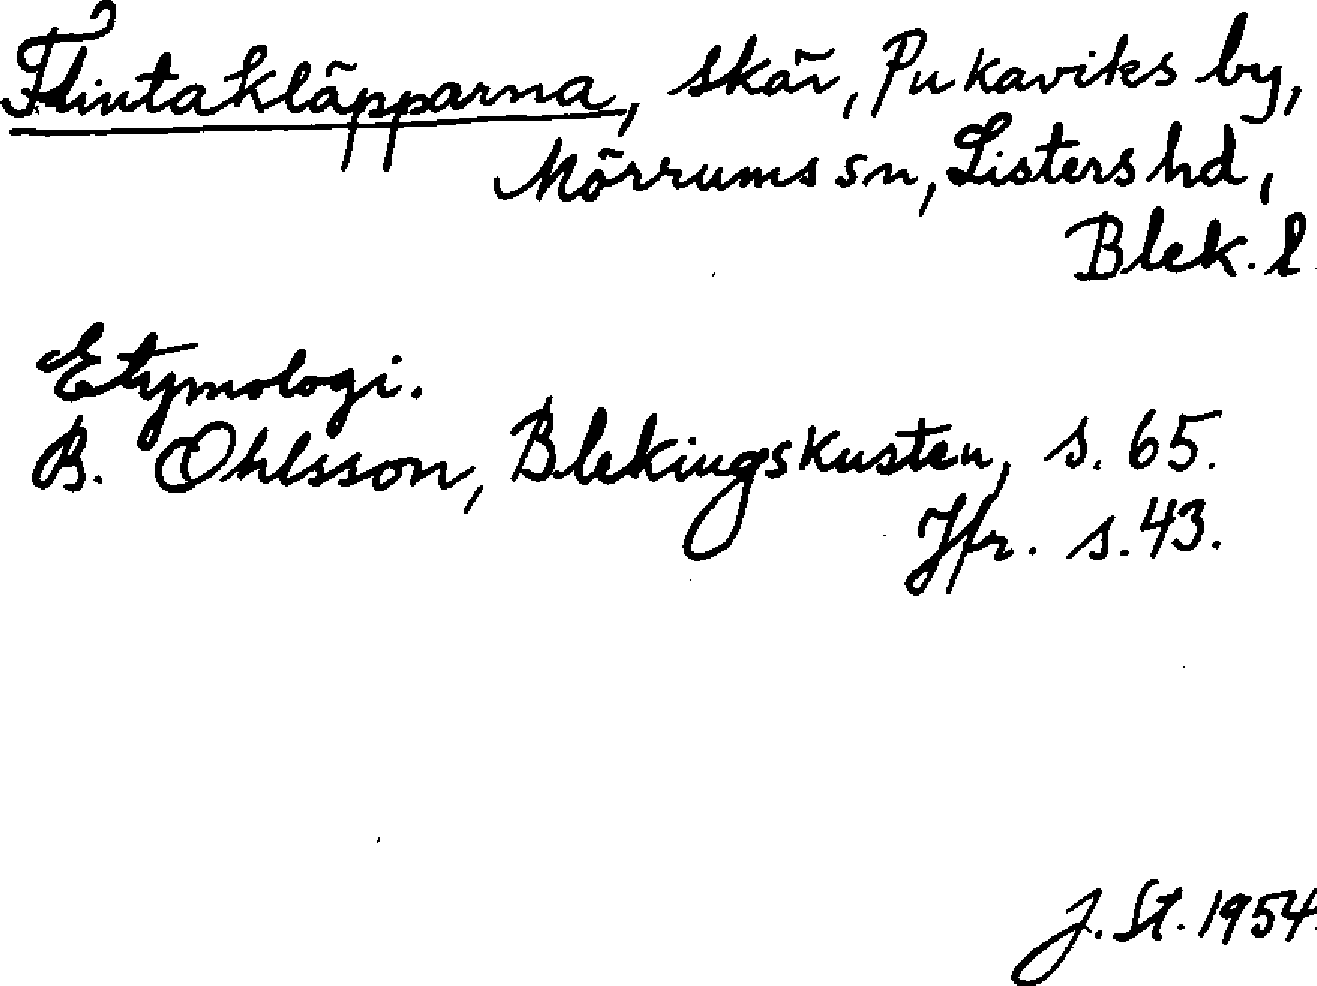 Flintakläpparna, skär, Pukaviks by,
Mörrums sn, Listers hd,
Blek. l
Etymologi.
B. Ohlsson, Blekingskusten, s. 65.
Jfr. s. 43.
J. St. 1954.